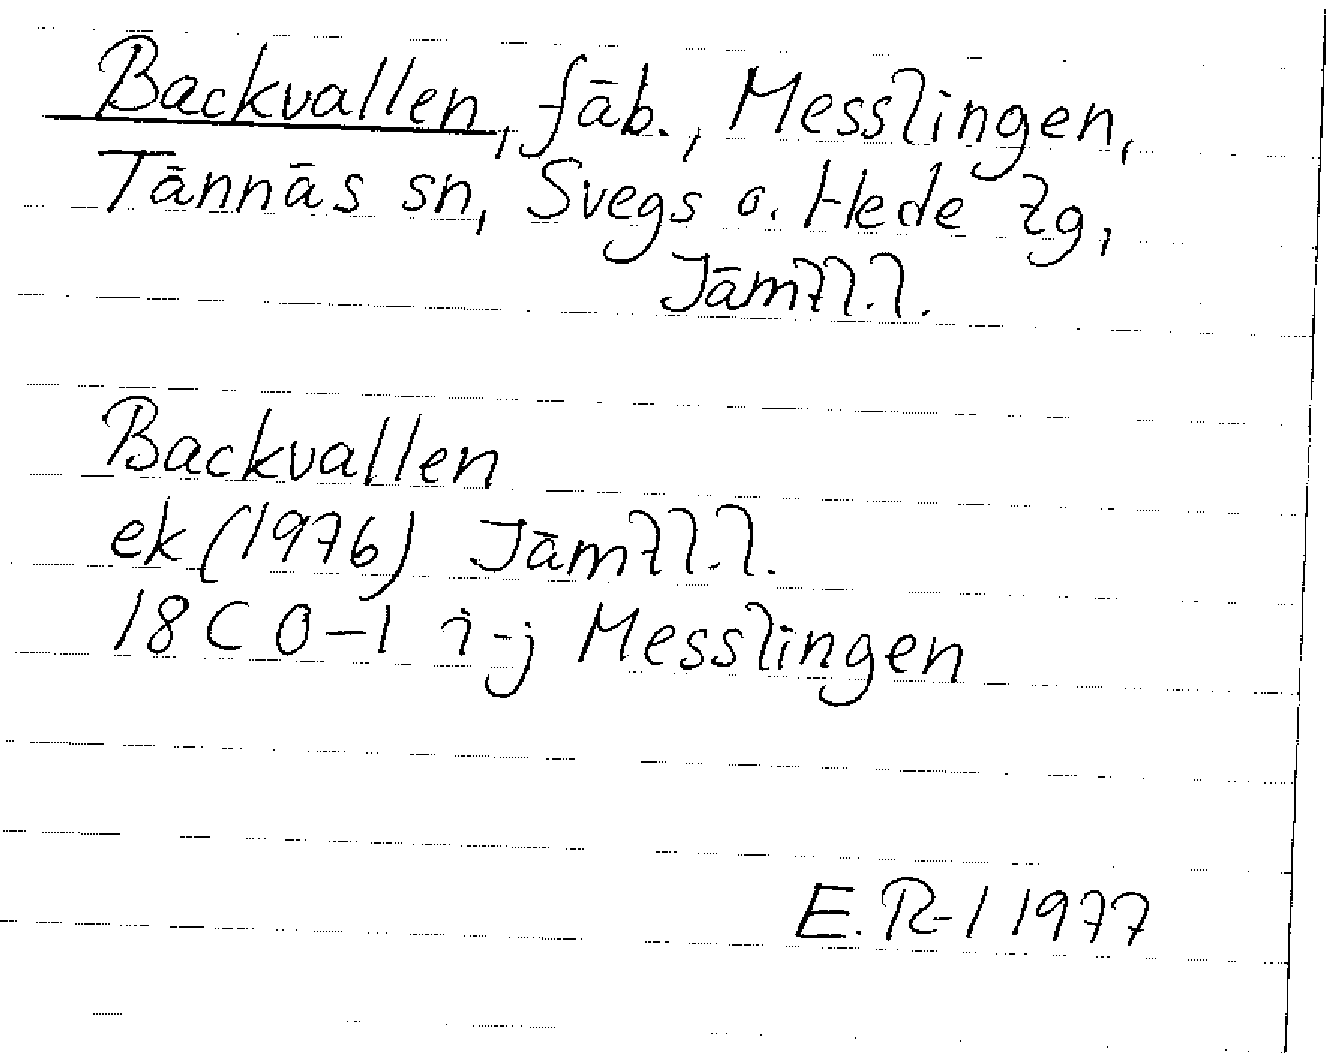 Backvallen, fäb., Messlingen,
Tännäs sn, Svegs o. Hede tg,
Jämtl.l.
Backvallen
ek (1976) Jämtl.l.
18C 0-1 i-j Messlingen
E.R-l 1977